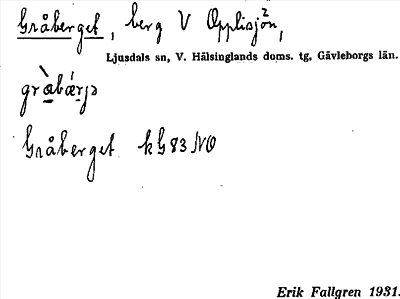 Gråberget, berg V Opplisjön,
Ljusdals sn, V. Hälsinglands doms. tg, Gävleborgs län.
Gråberget kG83NO
Erik Fallgren 1931.